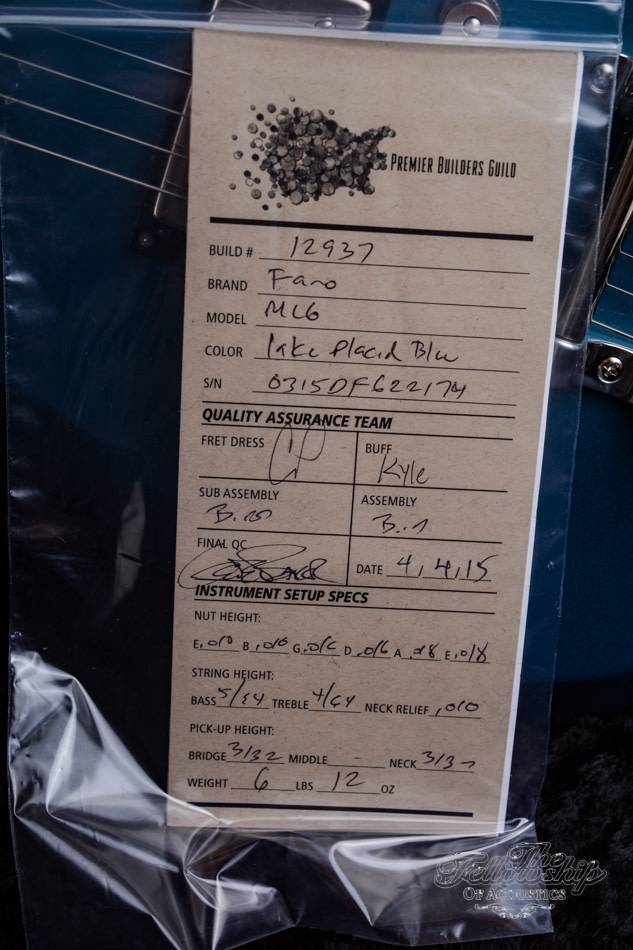 PREMIER BUILDERS GUILD
BUILD # 12937
BRAND Fano
MODEL ML6
COLOR lake placid Blue
S/N 0315DF622174
QUALITY ASSURANCE TEAM
FRET DRESS BUFF Kyle
SUB ASSEMBLY ASSEMBLY
FINAL QC DATE 4,4,15
INSTRUMENT SETUP SPECS
NUT HEIGHT:
E .010 B .010 G .016 D .016 A .018 E .018
STRING HEIGHT:
BASS 5/64 TREBLE 4/64 NECK RELIEF .010
PICK-UP HEIGHT:
BRIDGE 3/32 MIDDLE - NECK 3/32
WEIGHT 6 LBS 12 OZ
The
Fellowship
OF ACOUSTICS